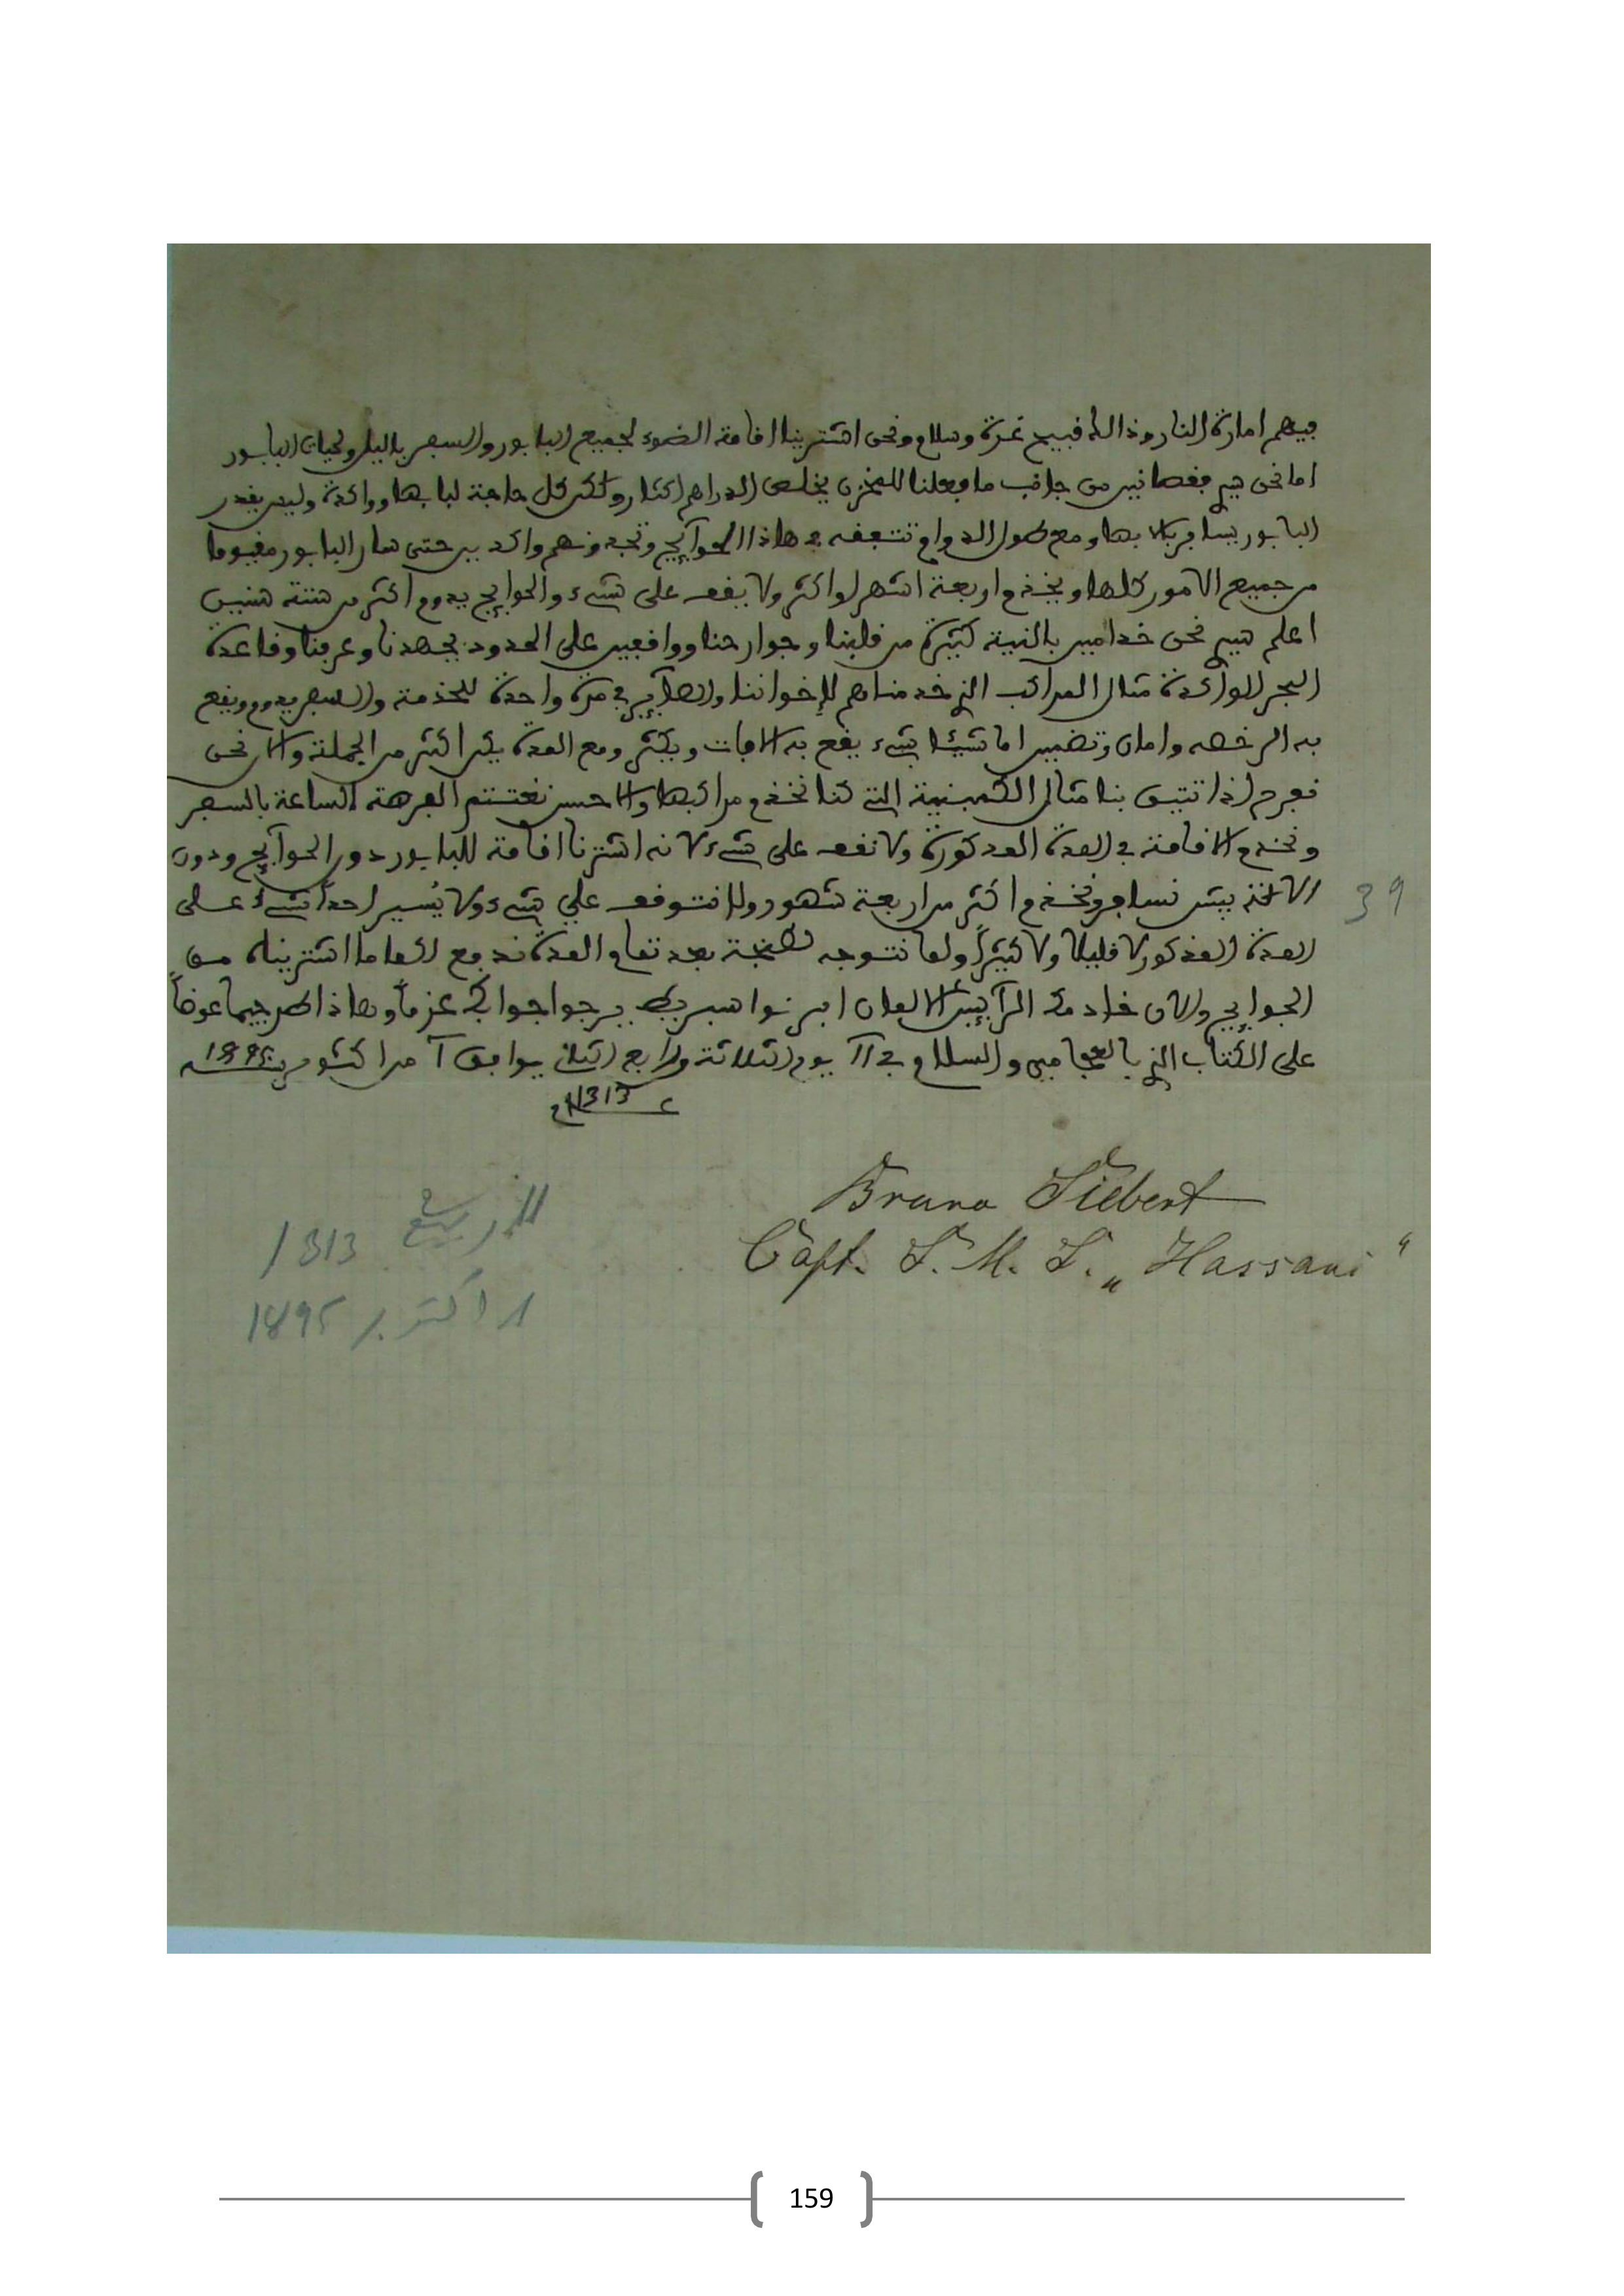 فيهم امارة النار وذالك قبيح غرة وسلام ونحن اشترينا اقامة الضوء لجميع البابور والسفر باليل ولحيات البابور
اما نحن هيم فقصانين من جانب ما فعلنا للمخزن يخلص الدراهم اكثار ولكن كل حاجة لبابها وواكدة وليس يقدر
البابور يسافر بلا بها ومع طول الدوام تتعفه في هاذا الحوآيج وتجدونهم واكدين حتى صار البابور مفيوما
من جميع الامور كلها ويخدم اربعة اشهر او اكثر ولا يقف على شيء والحوايج يدوم اكثر من ستة سنين
اعلم هيم نحن خدامين بالنية كثيرة من قلبنا وجوارحنا وواقفين على الحدود بجهدنا وعرفنا وقاعدة
البحر الواكدة مثال المراكب الذي خدمناهم لإخواننا والصآير في مرة واحدة للخدمة والسفر يدوم ويقع
به الرخصه وامان وتضمين اما شيئا بشيء يقع به الافات ويكثر ومع المدة يكن اكثر من الجملة والان نحن
نفرح اذا تتيق بنا مثال الكمبنية التي كنا نخدم مراكبها والاحسن نغتنم الفرصة الساعة بالسفر
ونخدم الاقامة في المدة المدكورة ولا نقف على شيء لانه اشترنا اقامة للبابور دون الحوآيج ودون
الالة بيش نسافر ونخدم اكثر من اربعة شهور ولا نتوقف علي شيء ولا يُسير احداً شيءً على
المدة المذكور لا قليلا ولا كثيراً ولما نتوجه لطنجة بعد تمام المدة ندفع لكم ما اشتريناه من
الحوايج والان خادمك الرآييس الالمان ابرنوا سبريط يرجوا جوابك عزماً وهاذا الحرجيما عوضاً
على الكتاب الذي بالعجامين والسلام في 11 يوم الثلاثة ورابع الثان يوافق 1 من اكتوبر 1895
عـ 1313ـام
39
Bruno Siebert
Capt. S. M. S. „Hassani“
11 ربيع 1313
1 اكتوبر 1895
159